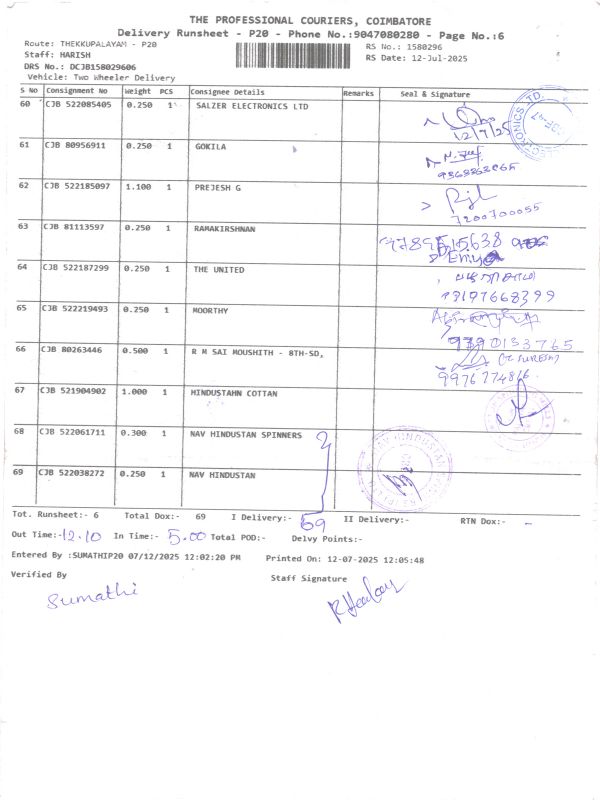 THE PROFESSIONAL COURIERS, COIMBATORE
Delivery Runsheet - P20 - Phone No.:9047080280 - Page No.:6
Route: THEKKUPALAYAM - P20 RS No.: 1580296
Staff: HARISH RS Date: 12-Jul-2025
DRS No.: DCJB158029606
Vehicle: Two Wheeler Delivery
S No Consignment No Weight PCS Consignee Details Remarks Seal & Signature
60 CJB 522085405 0.250 1 SALZER ELECTRONICS LTD
12/7/25
61 CJB 80956911 0.250 1 GOKILA
62 CJB 522185097 1.100 1 PREJESH G
7200700055
63 CJB 81113597 0.250 1 RAMAKIRSHNAN
64 CJB 522187299 0.250 1 THE UNITED
65 CJB 522219493 0.250 1 MOORTHY
66 CJB 80263446 0.500 1 R M SAI MOUSHITH - 8TH-SD,
67 CJB 521904902 1.000 1 HINDUSTAHN COTTAN
68 CJB 522061711 0.300 1 NAV HINDUSTAN SPINNERS
69 CJB 522038272 0.250 1 NAV HINDUSTAN
Tot. Runsheet:- 6 Total Dox:- 69 I Delivery:- 69 II Delivery:- RTN Dox:- -
Out Time:- 12.10 In Time:- 5.00 Total POD:- Delvy Points:-
Entered By :SUMATHIP20 07/12/2025 12:02:20 PM Printed On: 12-07-2025 12:05:48
Verified By Staff Signature
Sumathi